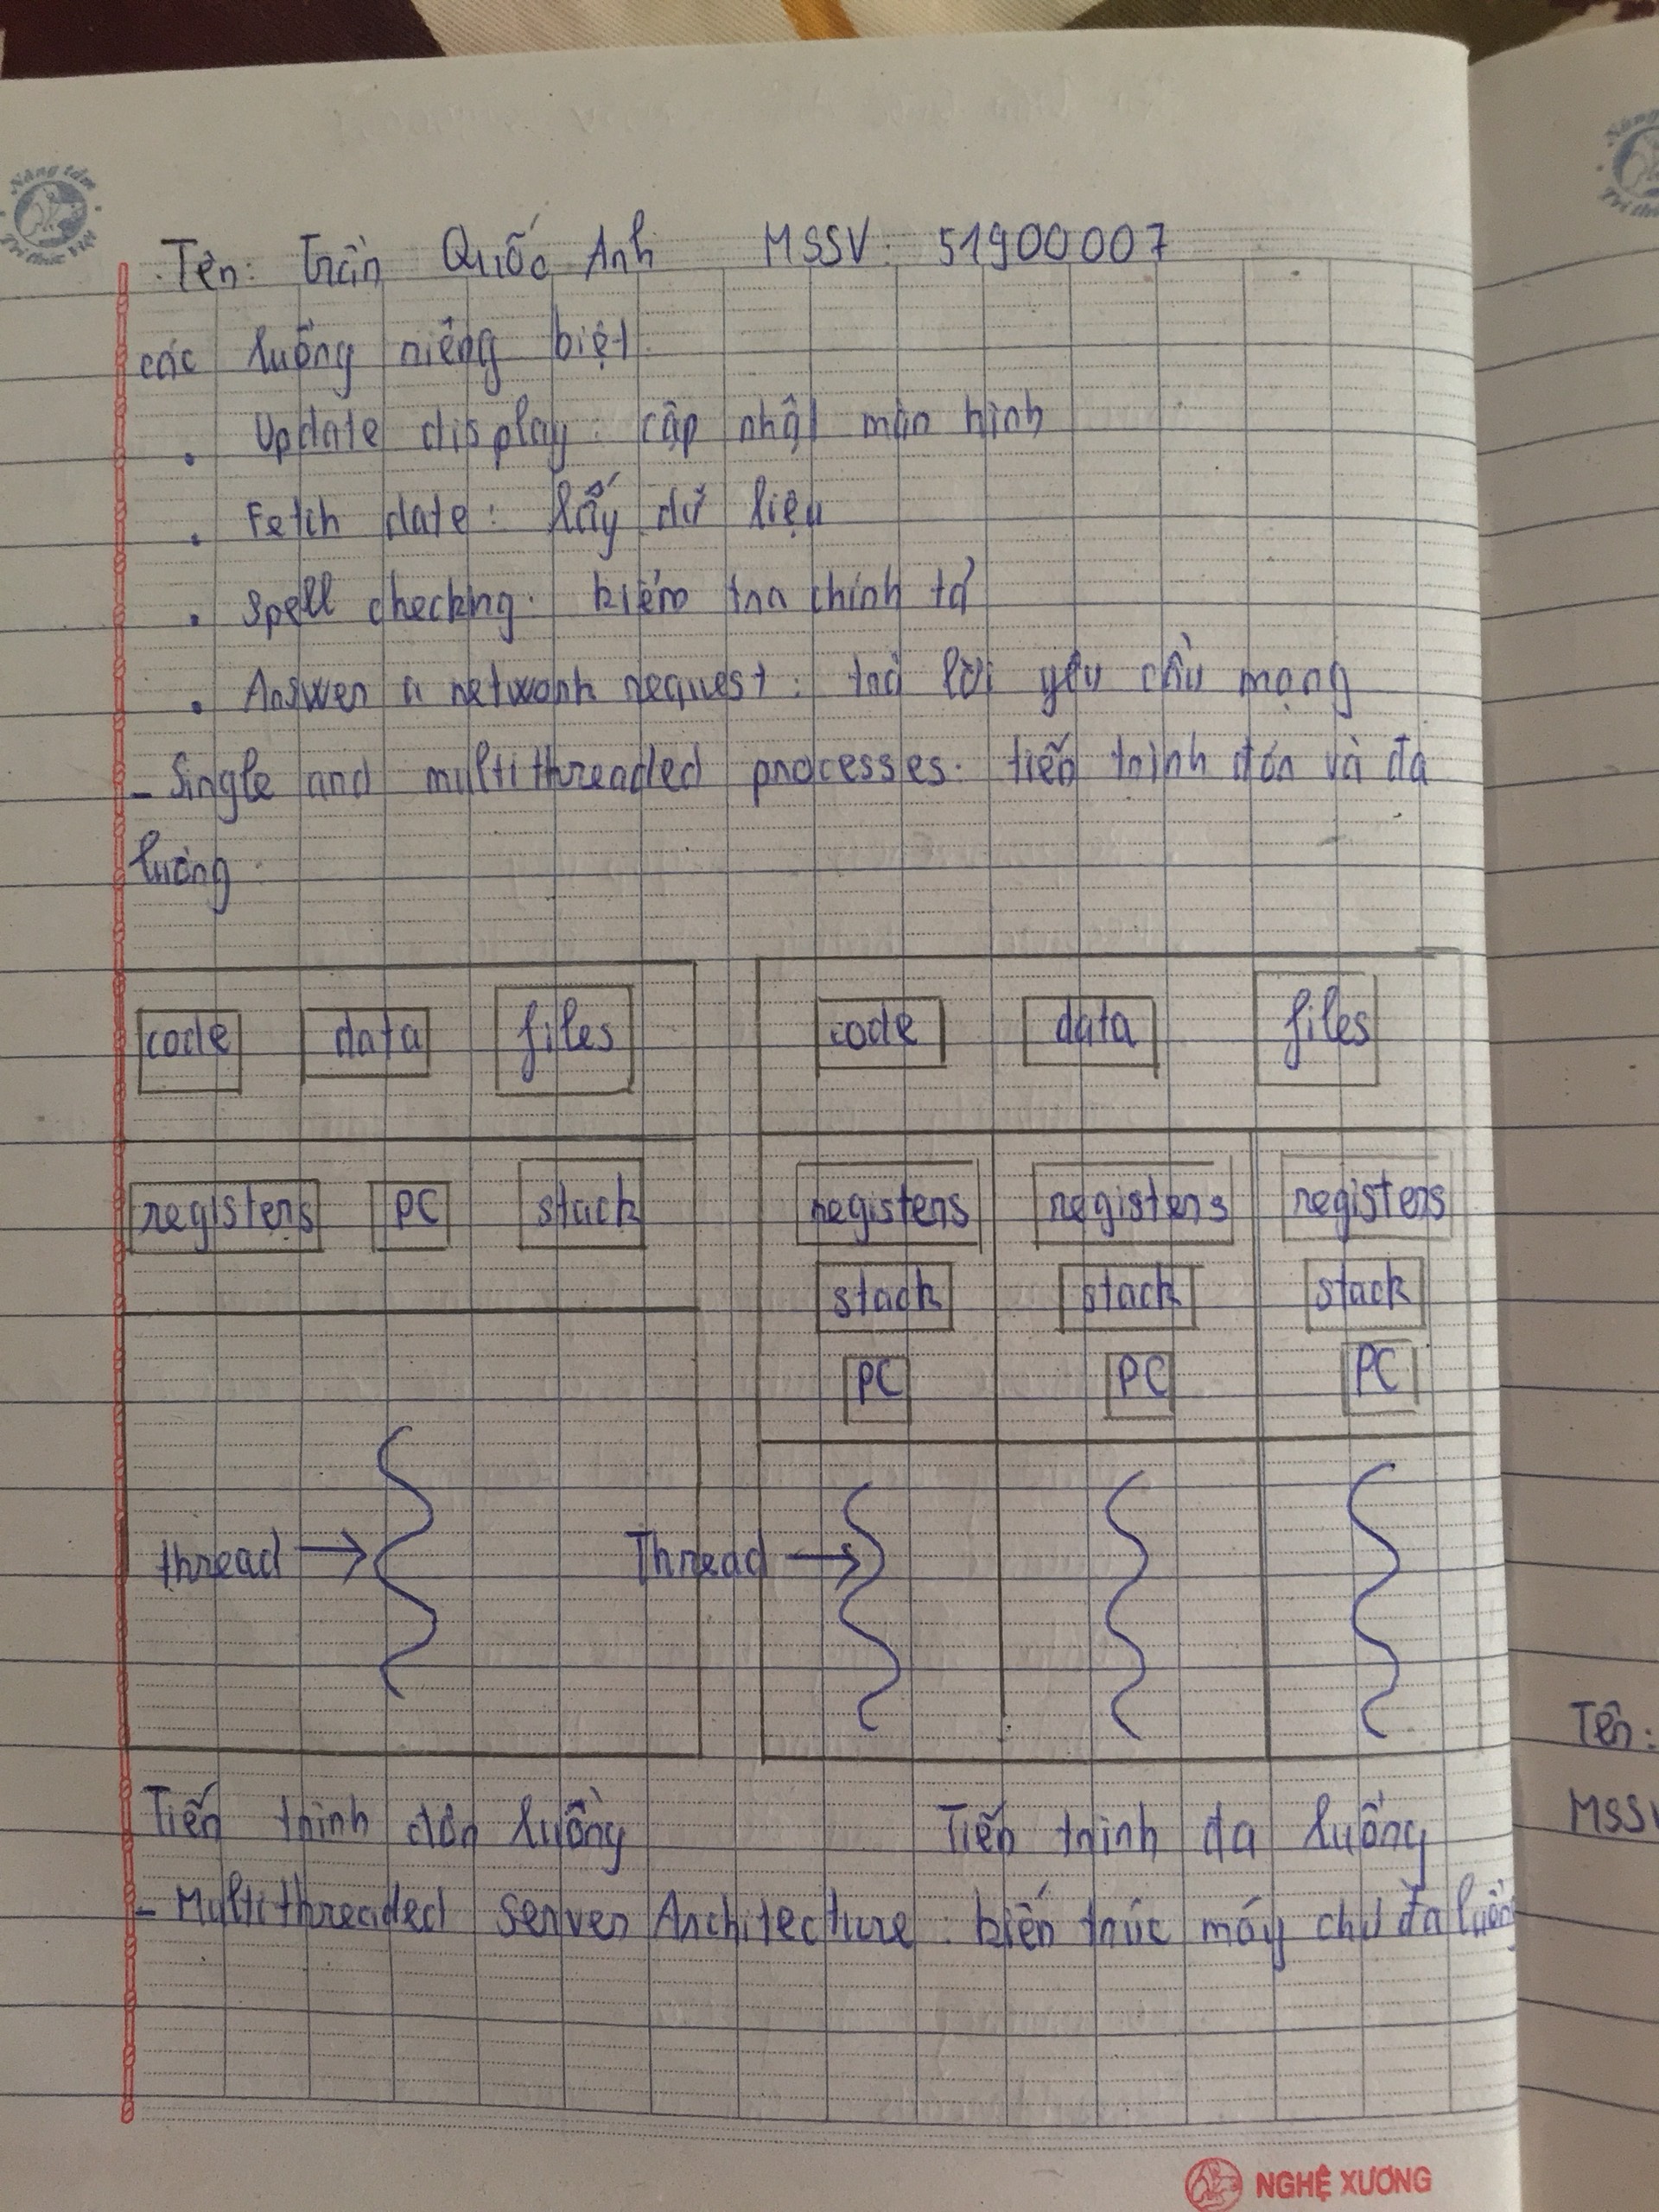 Nâng tầm
Trí thức Việt
Tên: Trần Quốc Anh MSSV: 51900007
các luồng riêng biệt.
• Update display: cập nhật màn hình
• Fetch date: lấy dữ liệu
• Spell checking: kiểm tra chính tả
• Answer a network request: trả lời yêu cầu mạng
- Single and multithreaded processes: tiến trình đơn và đa
luồng.
code data files code data files
registers PC stack registers registers registers
stack stack stack
PC PC PC
thread → Thread →
Tiến trình đơn luồng Tiến trình đa luồng
- Multithreaded Server Architecture: kiến trúc máy chủ đa luồng
Tên:
MSSV
NGHỆ XƯƠNG